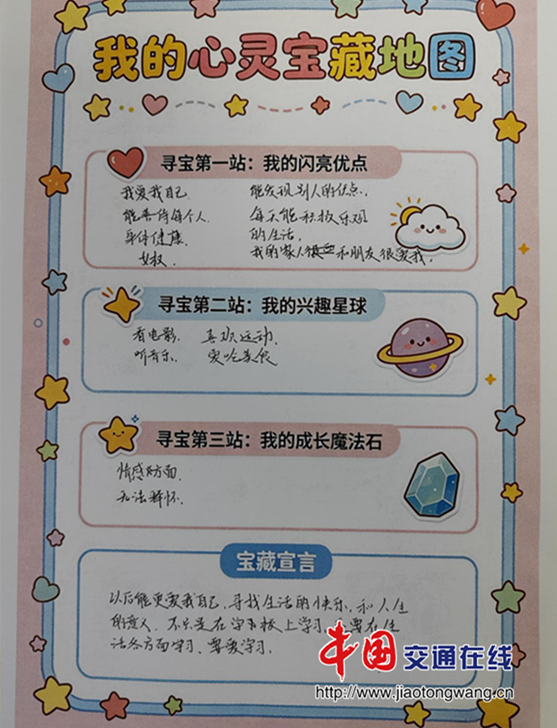 我的心灵宝藏地图
寻宝第一站：我的闪亮优点
我爱我自己.
能善待每个人.
身体健康.
能发现别人的优点.
每天能积极乐观
的生活.
我的家人 和朋友很爱我.
寻宝第二站：我的兴趣星球
看电影.
听音乐.
喜欢运动.
爱吃美食
寻宝第三站：我的成长魔法石
情感方面.
无法释怀.
宝藏宣言
以后能更爱我自己.寻找生活的快乐.和人生
的意义.不只是在学校上学习. 要在生
活各方面学习. 要爱学习.
中国交通在线
http://www.jiaotongwang.cn